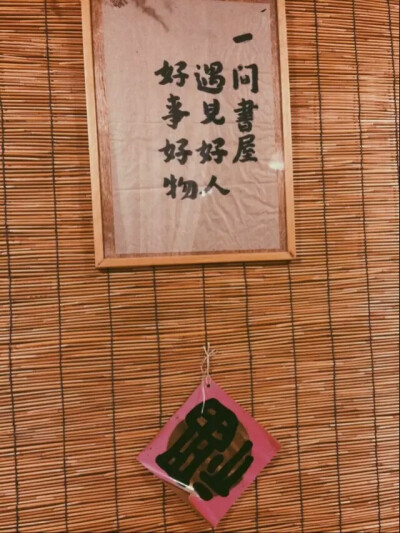 一问書屋
遇見好人
好事好物